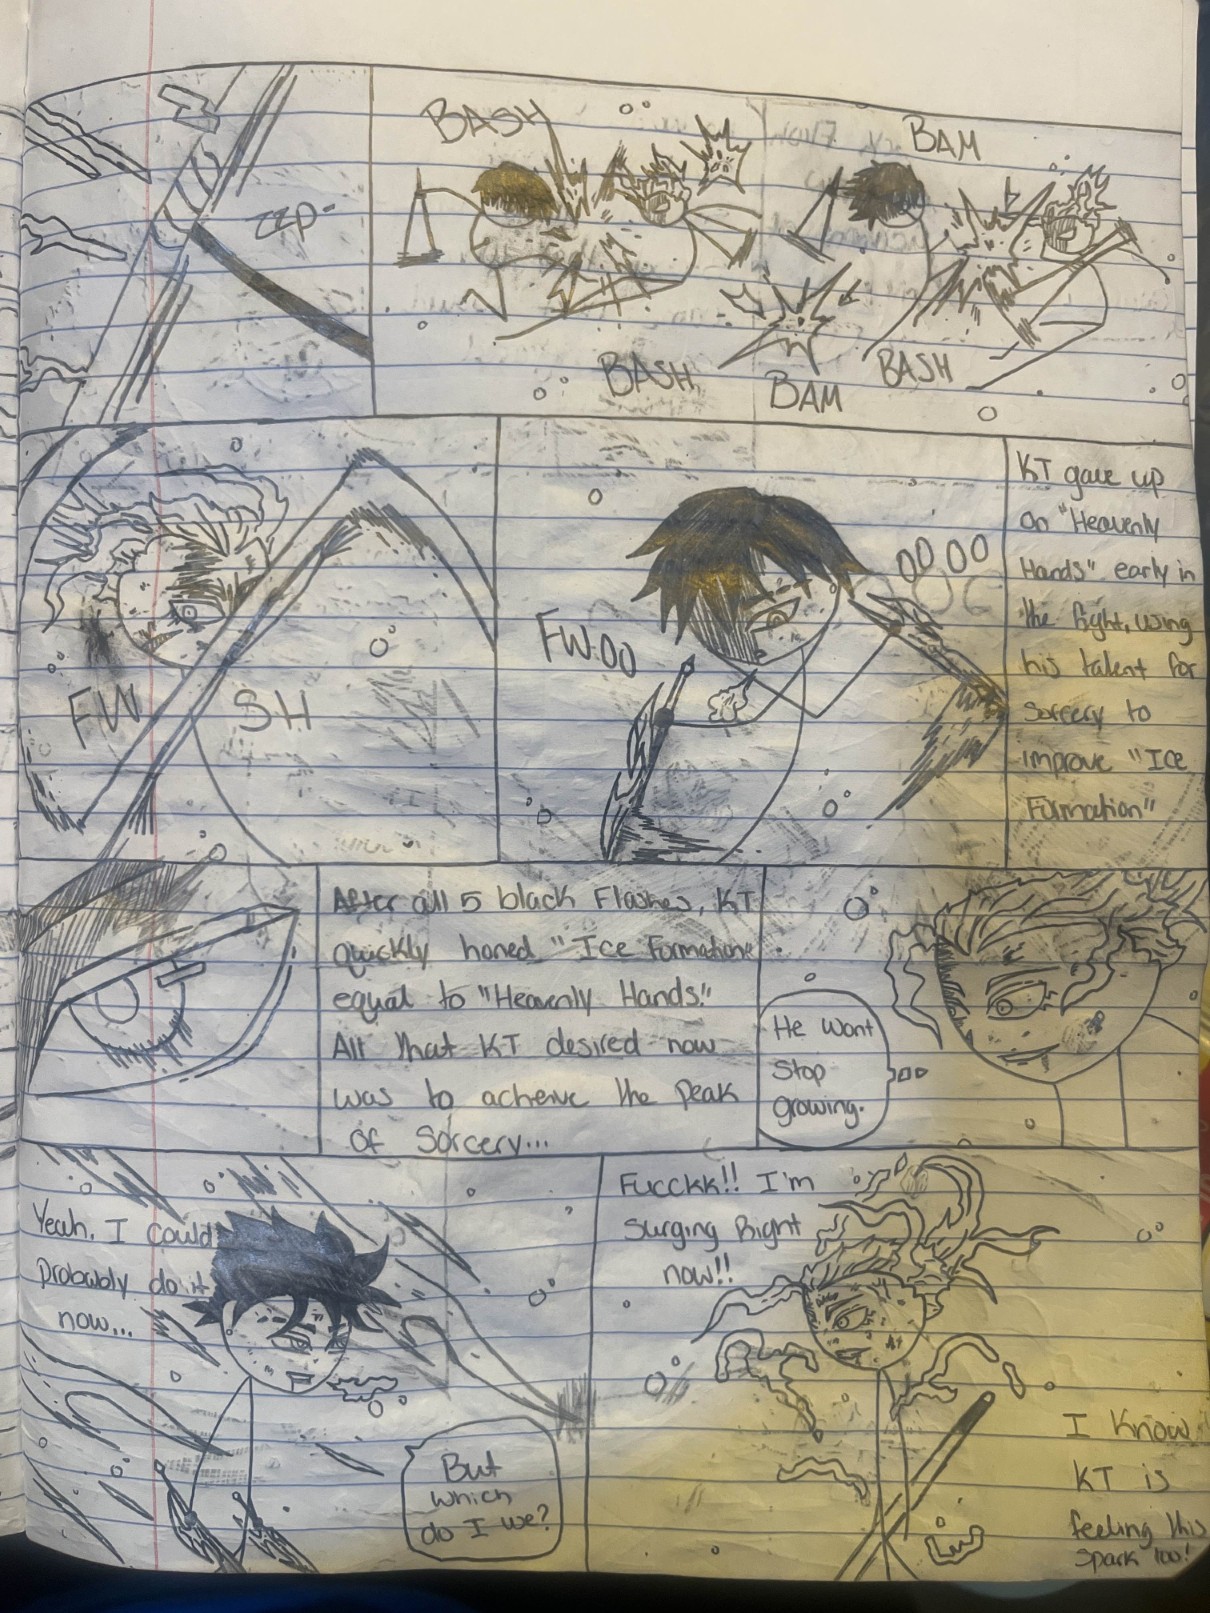 ZZP-
BASH
BAM
BASH
BAM
BASH
FW
SH
FWOO
OOOO
KT gave up
on "Heavenly
Hands" early in
the fight, using
his talent for
Sorcery to
improve "Ice
Formation"
After all 5 black Flashes, KT
quickly honed "Ice Formation"
equal to "Heavenly Hands."
All that KT desired now
was to acheive the peak
of Sorcery...
He wont
Stop
growing.
Yeah, I Could
probably do it
now...
But
which
do I use?
Fucckk!! I'm
Surging Right
now!!
I Know
KT is
feeling this
Spark too!